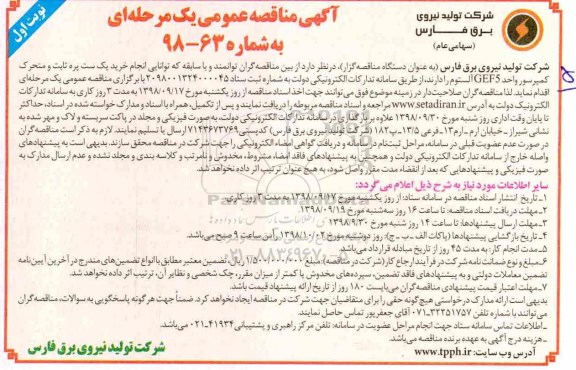 نوبت اول
آگهی مناقصه عمومی یک مرحله‌ای
به شماره ۶۳-۹۸
شرکت تولید نیروی
برق فارس
(سهامی عام)
شرکت تولید نیروی برق فارس (به عنوان دستگاه مناقصه‌گزار)، در نظر دارد از بین مناقصه‌گران توانمند و با سابقه که توانایی انجام خرید یک ست پره ثابت و متحرک
کمپرسور واحد GEF5 آلستوم را دارند، از طریق سامانه تدارکات الکترونیکی دولت به شماره ثبت ستاد ۲۰۹۸۰۰۱۳۲۴۰۰۰۰۴۵ با برگزاری مناقصه عمومی یک مرحله‌ای
اقدام نماید. لذا مناقصه‌گران صلاحیت‌دار در زمینه موضوع فوق می‌توانند جهت اخذ اسناد مناقصه از روز یکشنبه مورخ ۱۳۹۸/۰۹/۱۷ به مدت ۳ روز کاری به سامانه تدارکات
الکترونیک دولت به آدرس www.setadiran.ir مراجعه و اسناد مناقصه مربوطه را دریافت نمایند و پس از تکمیل، همراه با اسناد و مدارک خواسته شده در اسناد، حداکثر
تا پایان وقت اداری روز شنبه مورخ ۱۳۹۸/۰۹/۳۰ علاوه بر بارگذاری در سامانه تدارکات الکترونیکی دولت، به صورت فیزیکی و مجلد در پاکت سربسته و لاک و مهر شده به
نشانی شیراز - خیابان ارم - ارم ۱۳ - فرعی ۱۳/۵ - پ ۱۸۲ (شرکت تولید نیروی برق فارس) کدپستی ۷۱۴۳۶۷۳۷۶۹ ارسال یا تسلیم نمایند. لازم به ذکر است مناقصه‌گران
در صورت عدم عضویت قبلی در سامانه، مراحل ثبت‌نام در سامانه و دریافت گواهی امضاء الکترونیکی را جهت شرکت در مناقصه محقق سازند. بدیهی است به پیشنهادهای
واصله خارج از سامانه تدارکات الکترونیکی دولت و همچنین به پیشنهادهای فاقد امضاء، مشروط، مخدوش و نامرتب و کلاسه بندی و مجلد نشده و عدم ارسال مدارک به
صورت فیزیکی و پیشنهادهایی که بعد از انقضاء مدت مقرر واصل شود، به هیچ عنوان ترتیب اثر داده نخواهد شد.
سایر اطلاعات مورد نیاز به شرح ذیل اعلام می‌گردد:
۱- تاریخ انتشار اسناد مناقصه در سامانه ستاد: از روز یکشنبه مورخ ۱۳۹۸/۰۹/۱۷ به مدت ۳ روز کاری.
۲- مهلت دریافت اسناد مناقصه: تا ساعت ۱۶ روز سه‌شنبه مورخ ۱۳۹۸/۰۹/۱۹
۳- مهلت ارسال پیشنهادها تا ساعت ۱۴ روز شنبه مورخ ۱۳۹۸/۹/۳۰
۴- تاریخ بازگشایی پیشنهادها (پاکات الف - ب - ج): روز دوشنبه مورخ ۱۳۹۸/۱۰/۰۲ رأس ساعت ۹ صبح می‌باشد.
۵- مدت انجام کار: به مدت ۴۵ روز از تاریخ مبادله قرارداد می‌باشد.
۶- مبلغ و نوع ضمانت نامه شرکت در فرآیند ارجاع کار (شرکت در مناقصه): مبلغ ۱/۵۰۰/۰۰۰/۰۰۰ ریال، تضمین معتبر مطابق با انواع تضمین‌های مندرج در آخرین آیین‌نامه
تضمین معاملات دولتی و به پیشنهادهای فاقد تضمین، سپرده‌های مخدوش یا کمتر از میزان مقرر، چک شخصی و نظایر آن، ترتیب اثر داده نخواهد شد.
۷- مهلت اعتبار قیمت پیشنهادی مناقصه‌گران می‌بایست ۱۸۰ روز از تاریخ ارائه پیشنهاد قیمت باشد.
بدیهی است ارائه مدارک درخواستی هیچ‌گونه حقی را برای متقاضیان جهت شرکت در مناقصه ایجاد نخواهد کرد. ضمناً جهت هر گونه پاسخگویی به سوالات، مناقصه‌گران
می‌توانند با شماره تلفن ۳۲۲۵۱۷۵۷-۰۷۱ آقای جعفرپور تماس حاصل نمایند.
- اطلاعات تماس سامانه ستاد جهت انجام مراحل عضویت در سامانه: تلفن مرکز راهبری و پشتیبانی ۴۱۹۳۴-۰۲۱ می‌باشد.
- هزینه درج آگهی به عهده برنده مناقصه می‌باشد.
آدرس وب سایت: www.tpph.ir
شرکت تولید نیروی برق فارس